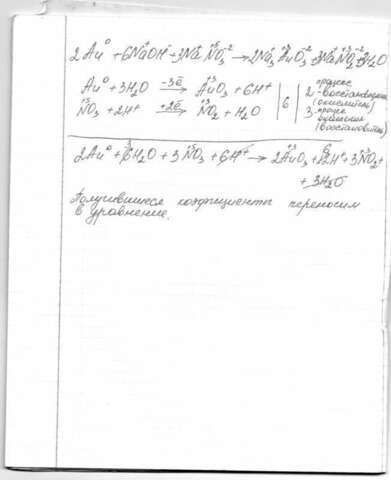 2Au⁰ + 6NaOH + 3NaNO₃ → 2Na₃AuO₃ + 3NaNO₂ + 3H₂O
Au⁰ + 3H₂O −3ē → AuO₃ + 6H⁺ | 6 | 2 - процесс восстановления (окислитель)
NO₃ + 2H⁺ +2ē → NO₂ + H₂O | 3 (восстановитель)
2Au⁰ + 6H₂O + 3NO₃ + 6H⁺ → 2AuO₃ + 12H⁺ + 3NO₂ +
+ 3H₂O
Получившиеся коэффициенты переносим
в уравнение.